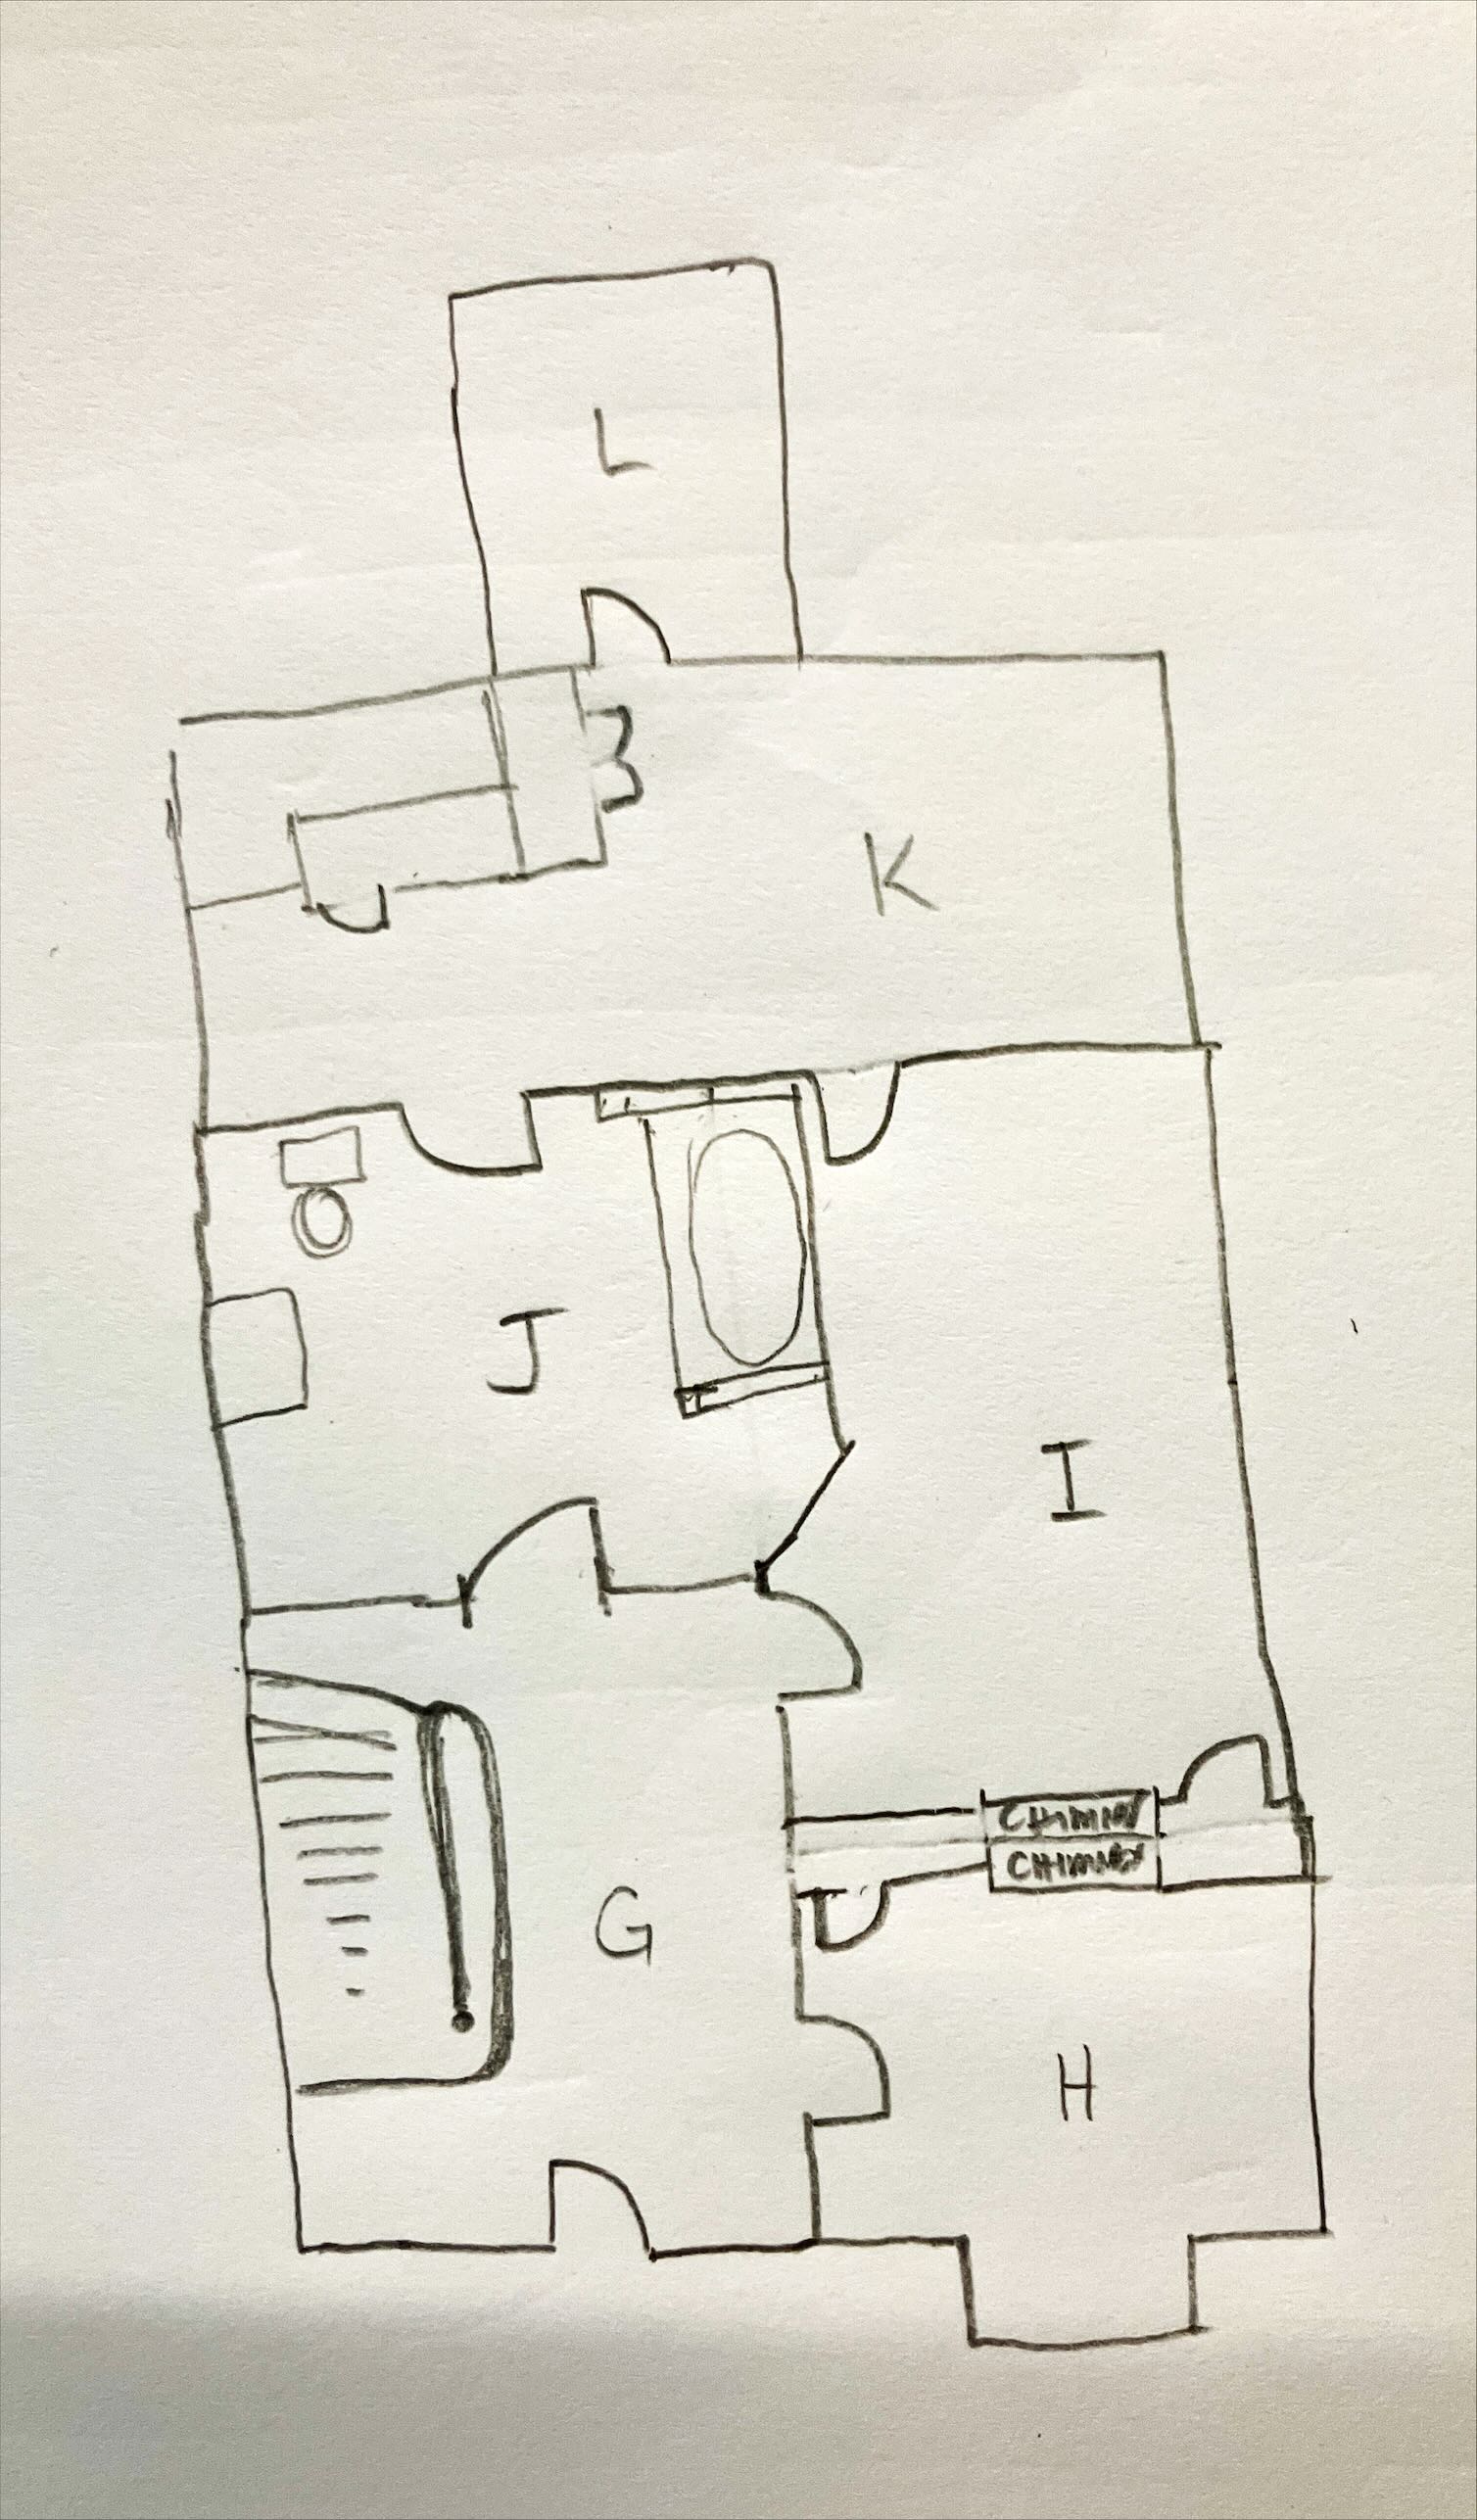 L
K
J
I
CHIMNEY
CHIMNEY
G
H